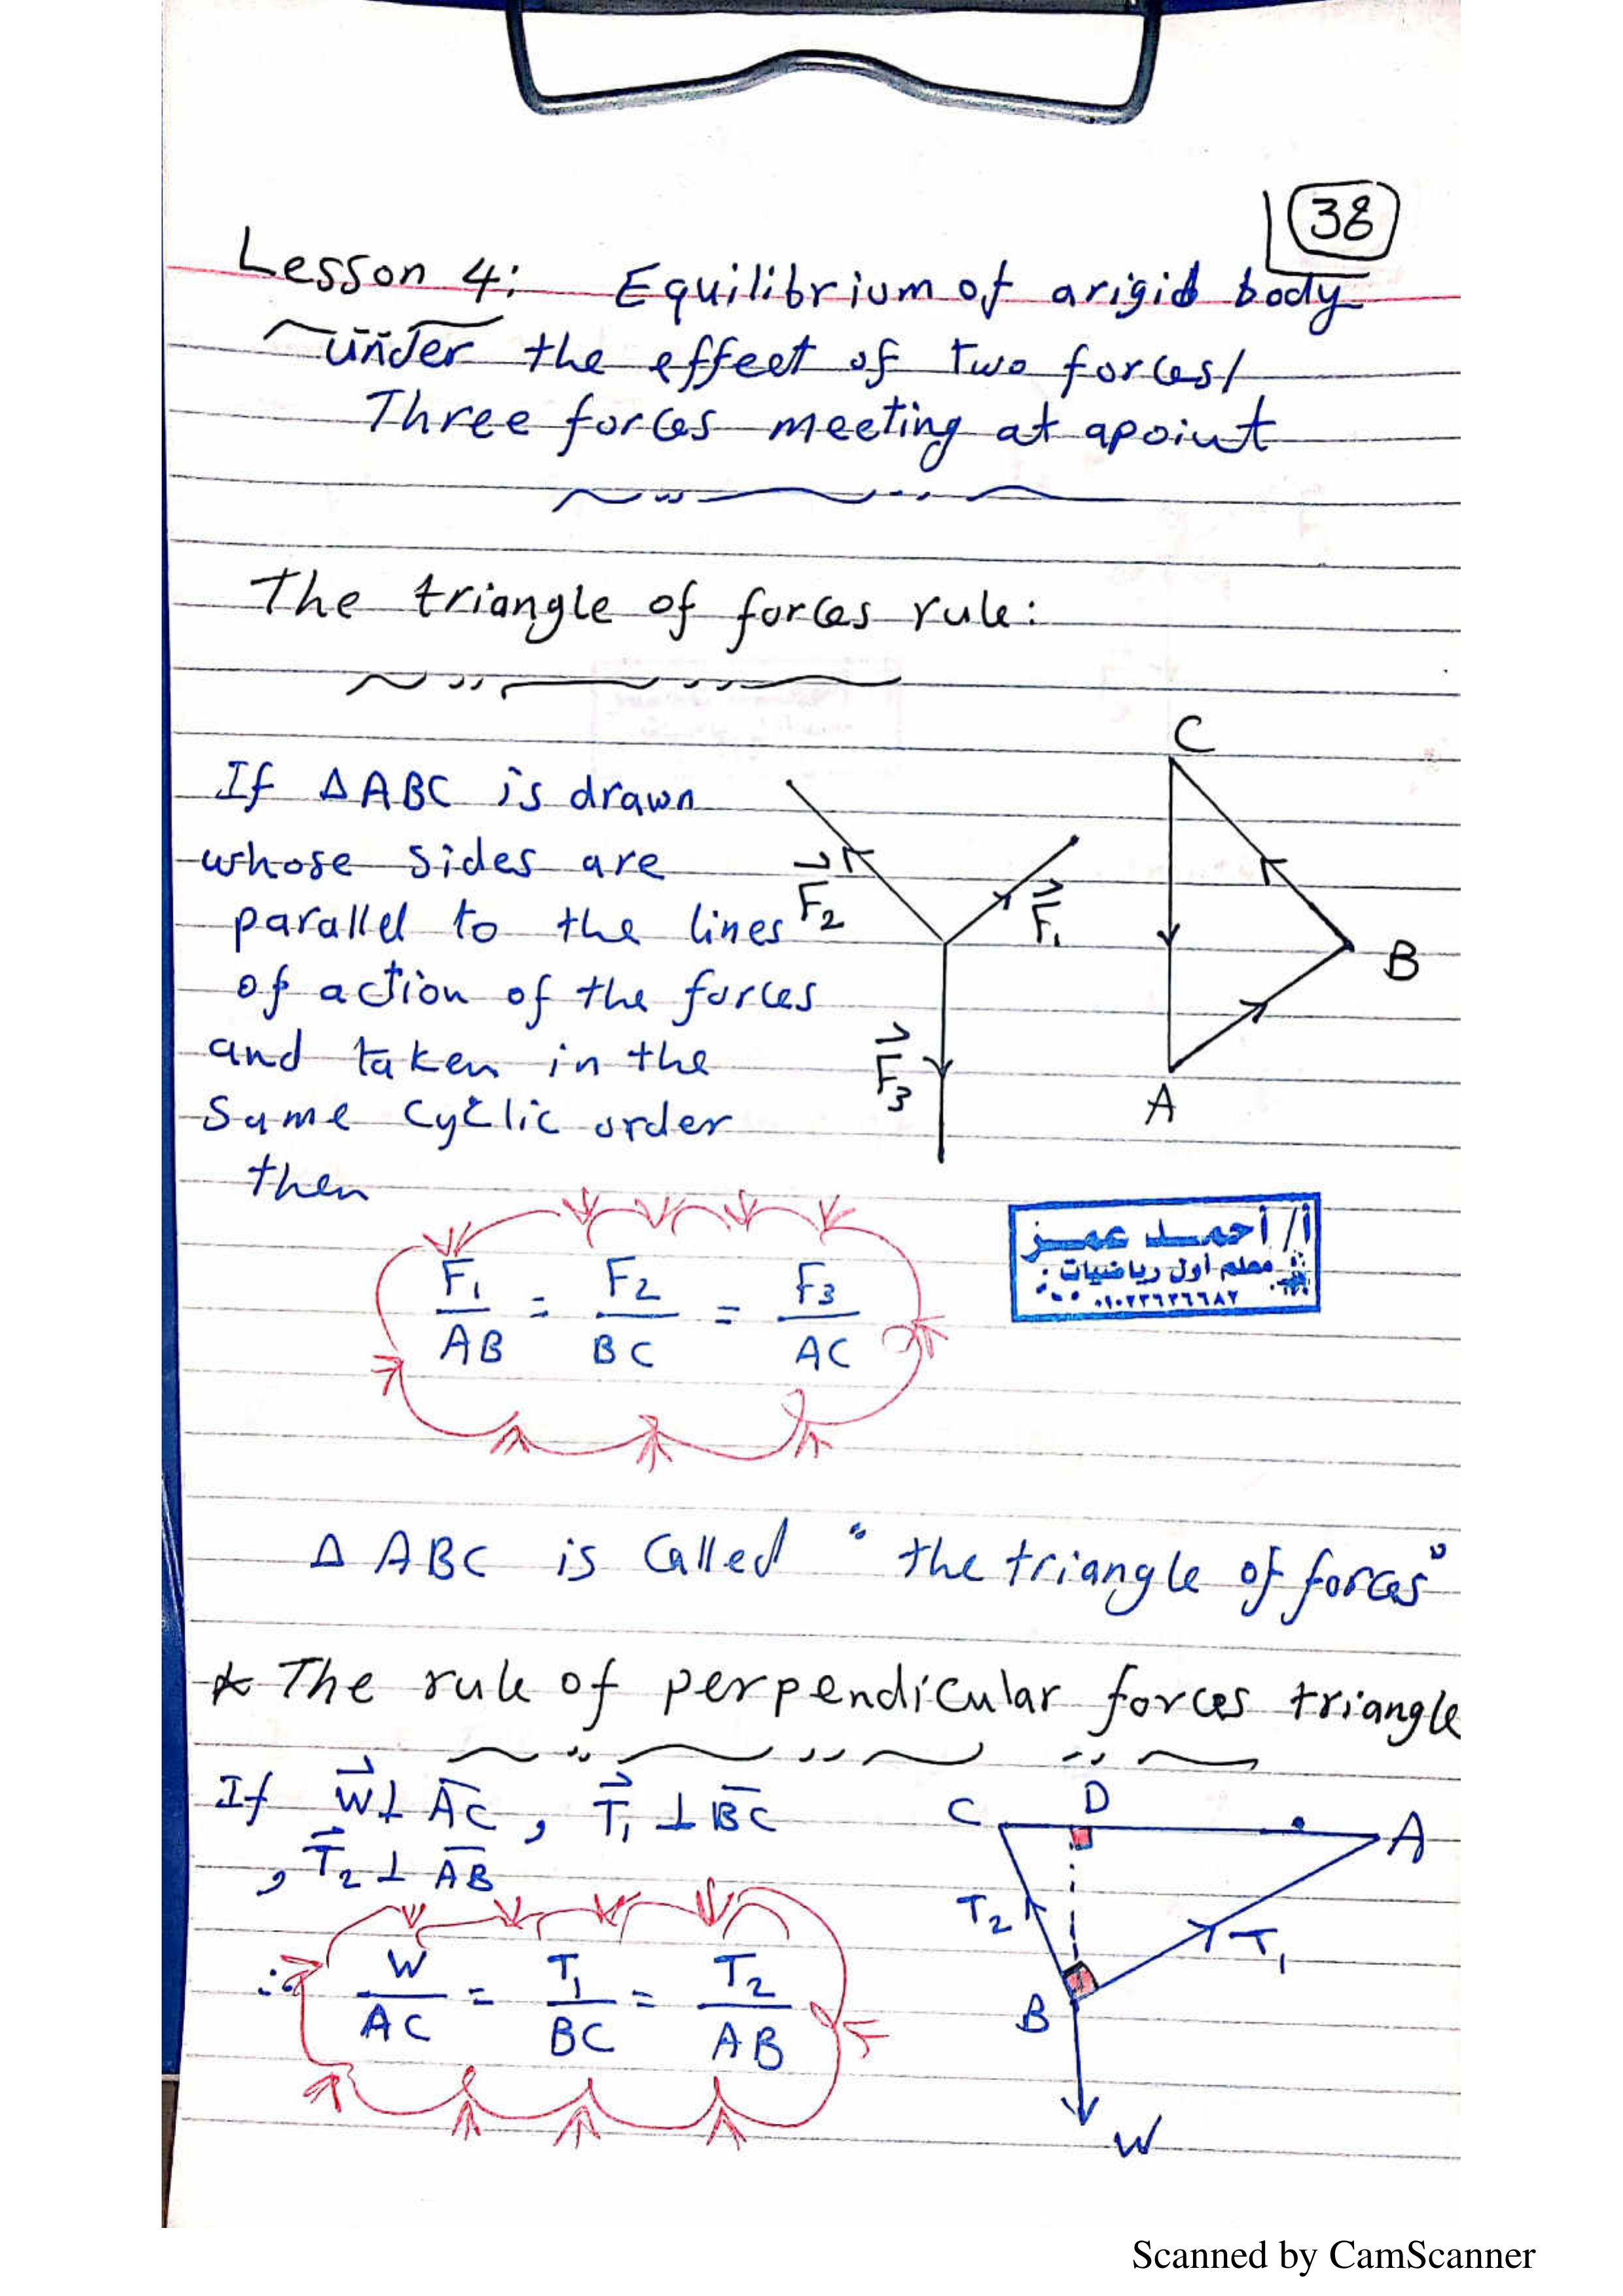 38
Lesson 4: Equilibrium of a rigid body
under the effect of two forces/
Three forces meeting at a point
The triangle of forces rule:
If ΔABC is drawn
whose sides are
parallel to the lines
of action of the forces
and taken in the
same cyclic order
then
F₂
F₁
F₃
C
B
A
F₁/AB = F₂/BC = F₃/AC
أ/ أحمد عمر
معلم أول رياضيات
Δ ABC is called "the triangle of forces"
* The rule of perpendicular forces triangle
If W ⊥ AC, T₁ ⊥ BC
, T₂ ⊥ AB
∴ W/AC = T₁/BC = T₂/AB
C D A
T₂ T₁
B
W
Scanned by CamScanner